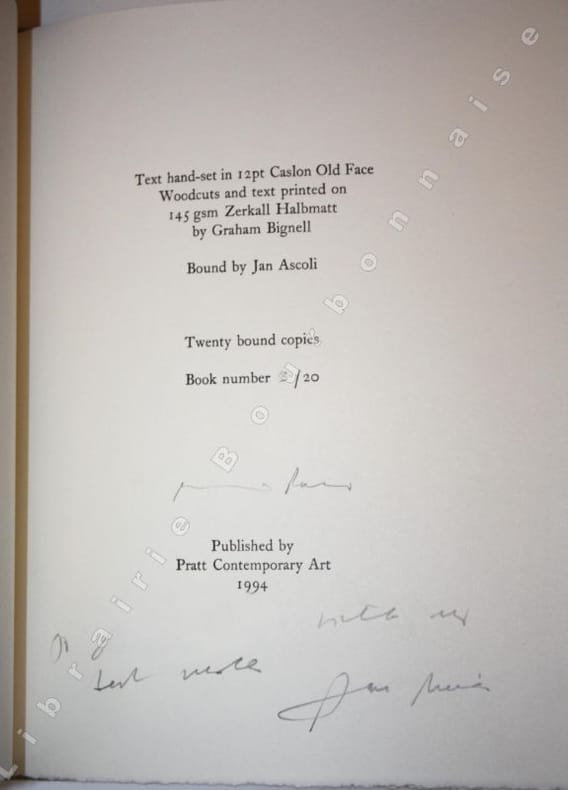 Text hand-set in 12pt Caslon Old Face
Woodcuts and text printed on
145 gsm Zerkall Halbmatt
by Graham Bignell
Bound by Jan Ascoli
Twenty bound copies
Book number /20
Published by
Pratt Contemporary Art
1994
with
best
Librairie Bouv'bonnaise